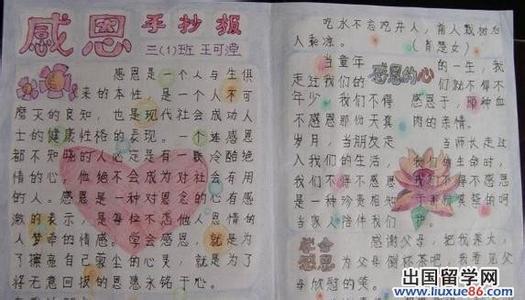 感恩 手抄报
三(1)班 王可滢
感恩是一个人与生俱
来的本性，是一个人不可
磨灭的良知，也是现代社会成功人
士的健康性格的表现。一个连感恩
都不知晓的人必定是有一颗冷酷绝
情的心，他绝不会成为对社会有用
的人。感恩是一种对恩惠的心有感
激的表示，是每位不忘他人恩情的
人梦牵的情感。学会感恩，就是为
了擦亮自己蒙尘的心灵，就是为了
将无意回报的恩惠永铭于心。
吃水不忘吃井人，前人栽树后
人乘凉。
当童年 感恩的心 的一生，我
走过我们的 们就不得不
年少 我们不得 感恩于，那种血
不感恩那份天真 肉的亲情。
岁月，当朋友走 当师长走过
入我们的生活， 我们的生命时，
我们不得不感恩 我们不得不感恩
是一种珍贵相
学会 感谢父母，把我养大，
感恩 为父母倒杯茶吧，我看到了
父母欣慰的笑。
出国留学网
www.liuxue86.com